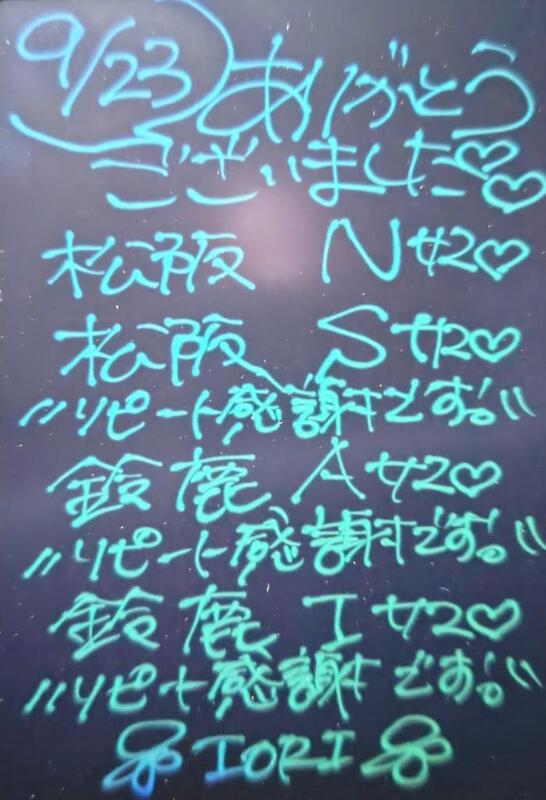 9/23 ありがとう
ございました♡♡
松阪 Nサマ♡
松阪 Sサマ♡
〃リピート感謝です。〃
鈴鹿 Aサマ♡
〃リピート感謝です。〃
鈴鹿 Iサマ♡
〃リピート感謝です。〃
IORI